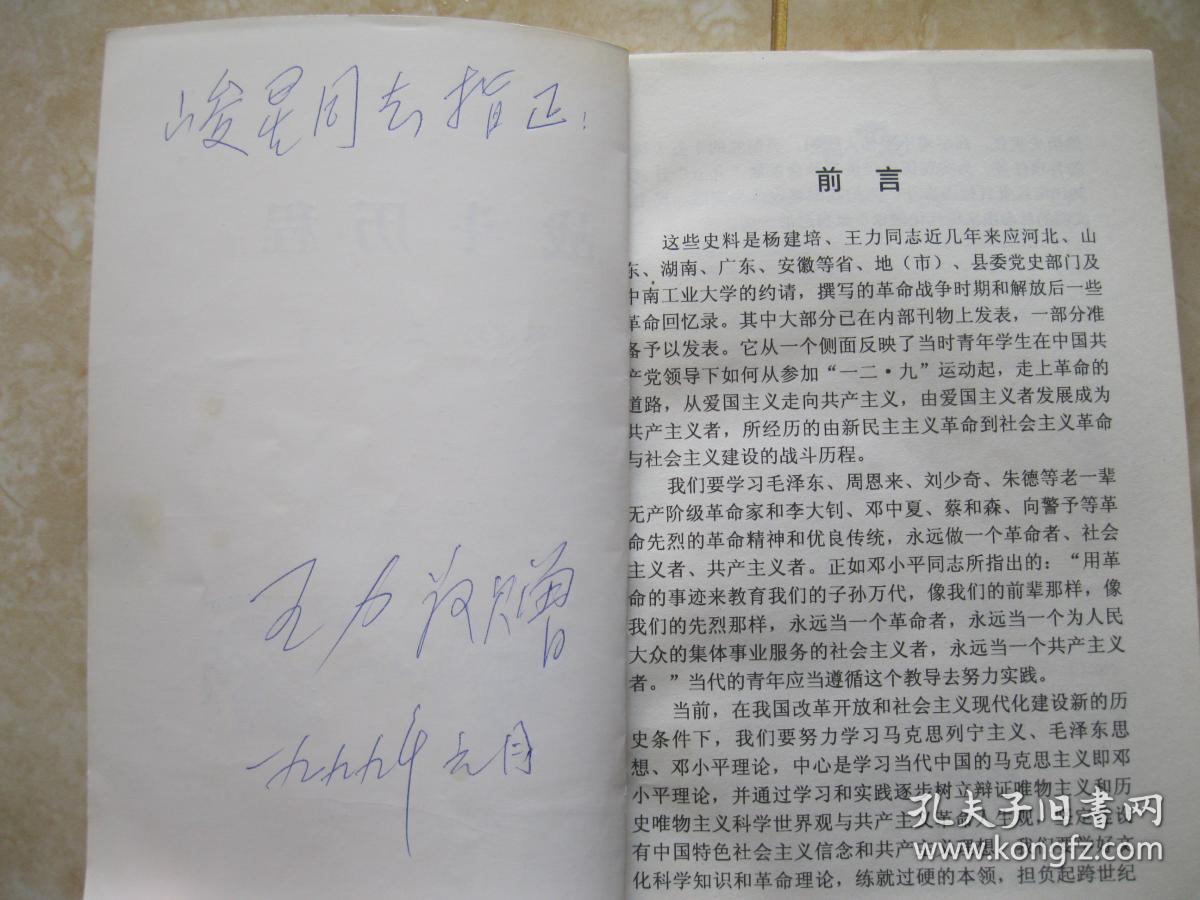 峻星同志指正：
王力敬赠
一九九九年六月
战斗历程
前言
这些史料是杨建培、王力同志近几年来应河北、山
东、湖南、广东、安徽等省、地（市）、县委党史部门及
中南工业大学的约请，撰写的革命战争时期和解放后一些
革命回忆录。其中大部分已在内部刊物上发表，一部分准
备予以发表。它从一个侧面反映了当时青年学生在中国共
产党领导下如何从参加“一二·九”运动起，走上革命的
道路，从爱国主义走向共产主义，由爱国主义者发展成为
共产主义者，所经历的由新民主主义革命到社会主义革命
与社会主义建设的战斗历程。
我们要学习毛泽东、周恩来、刘少奇、朱德等老一辈
无产阶级革命家和李大钊、邓中夏、蔡和森、向警予等革
命先烈的革命精神和优良传统，永远做一个革命者、社会
主义者、共产主义者。正如邓小平同志所指出的：“用革
命的事迹来教育我们的子孙万代，像我们的前辈那样，像
我们的先烈那样，永远当一个革命者，永远当一个为人民
大众的集体事业服务的社会主义者，永远当一个共产主义
者。”当代的青年应当遵循这个教导去努力实践。
当前，在我国改革开放和社会主义现代化建设新的历
史条件下，我们要努力学习马克思列宁主义、毛泽东思
想、邓小平理论，中心是学习当代中国的马克思主义即邓
小平理论，并通过学习和实践逐步树立辩证唯物主义和历
史唯物主义科学世界观与共产主义革命人生观，坚定建设
有中国特色社会主义信念和共产主义理想。我们要学好文
化科学知识和革命理论，练就过硬的本领，担负起跨世纪
孔夫子旧书网
www.kongfz.com